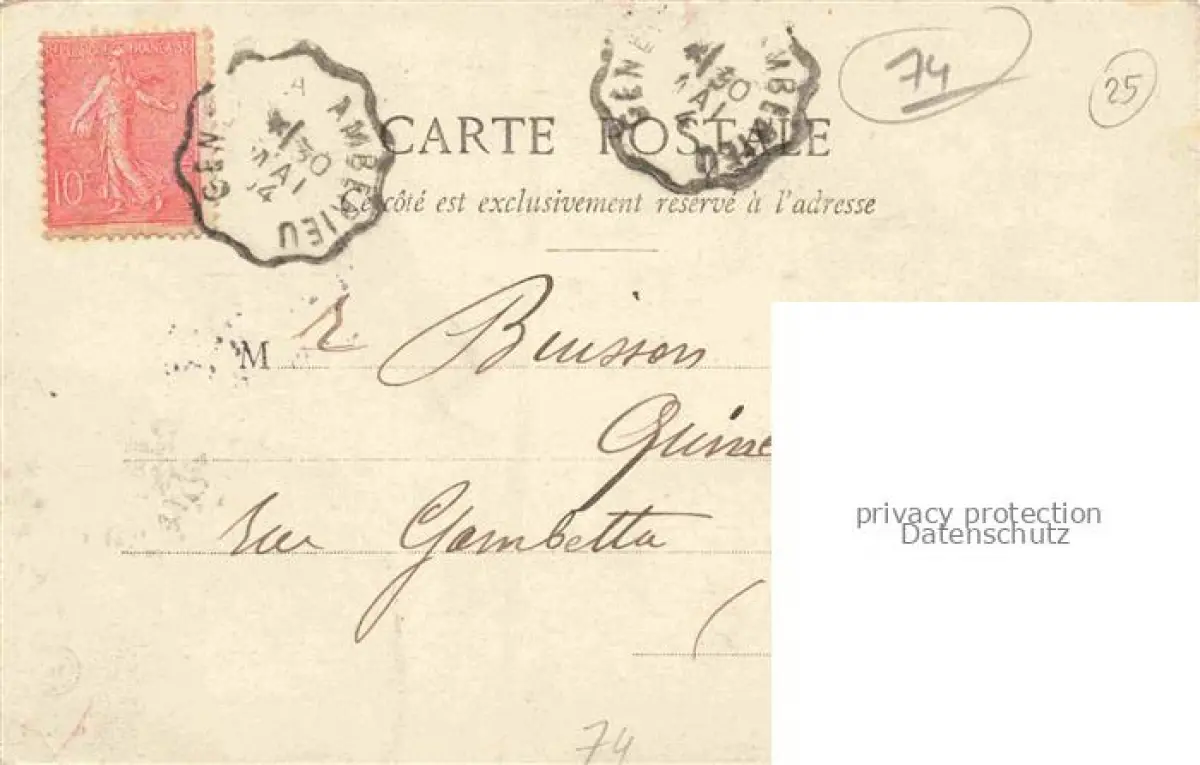 REPUBLIQUE FRANÇAISE
10c
GEN A AMBERIEU
30
MAI
04
GENE AMBERIEU
30
MAI
74
25
CARTE POSTALE
Ce côté est exclusivement réservé à l'adresse
M r Buisson
rue Gambetta
(
74
privacy protection
Datenschutz